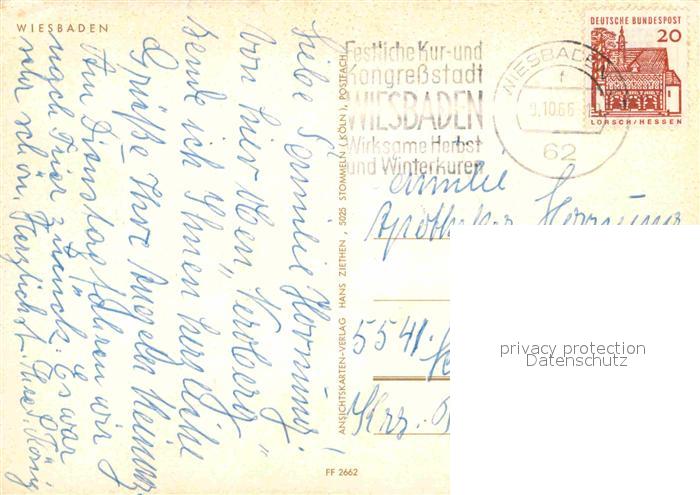 WIESBADEN
Liebe Familie
Von hier oben, "Neroberg"
sende ich Ihnen herzliche
Grüße Ihre Angela
Am Dienstag fahren wir
nach Trier zurück. Es war
sehr schön. Herzlichst Ihre König
ANSICHTSKARTEN-VERLAG HANS ZIETHEN, 5025 STOMMELN (KÖLN), POSTFACH
FF 2662
Festliche Kur- und
Kongreßstadt
WIESBADEN
Wirksame Herbst
und Winterkuren
WIESBADEN
f
9.10.66
62
DEUTSCHE BUNDESPOST
20
LORSCH/HESSEN
Familie
Apotheker
5541
Krs.
privacy protection
Datenschutz